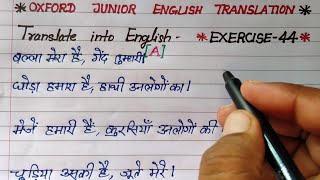 *OXFORD JUNIOR ENGLISH TRANSLATION*
Translate into English- *EXERCISE-44*
[A]
बल्ला मेरा है, गेंद तुम्हारी
घोड़ा हमारा है, हाथी उनलोगों का।
मेजें हमारी हैं, कुरसियाँ उनलोगों की
चूड़ियाँ उसकी हैं, जूते मेरे।